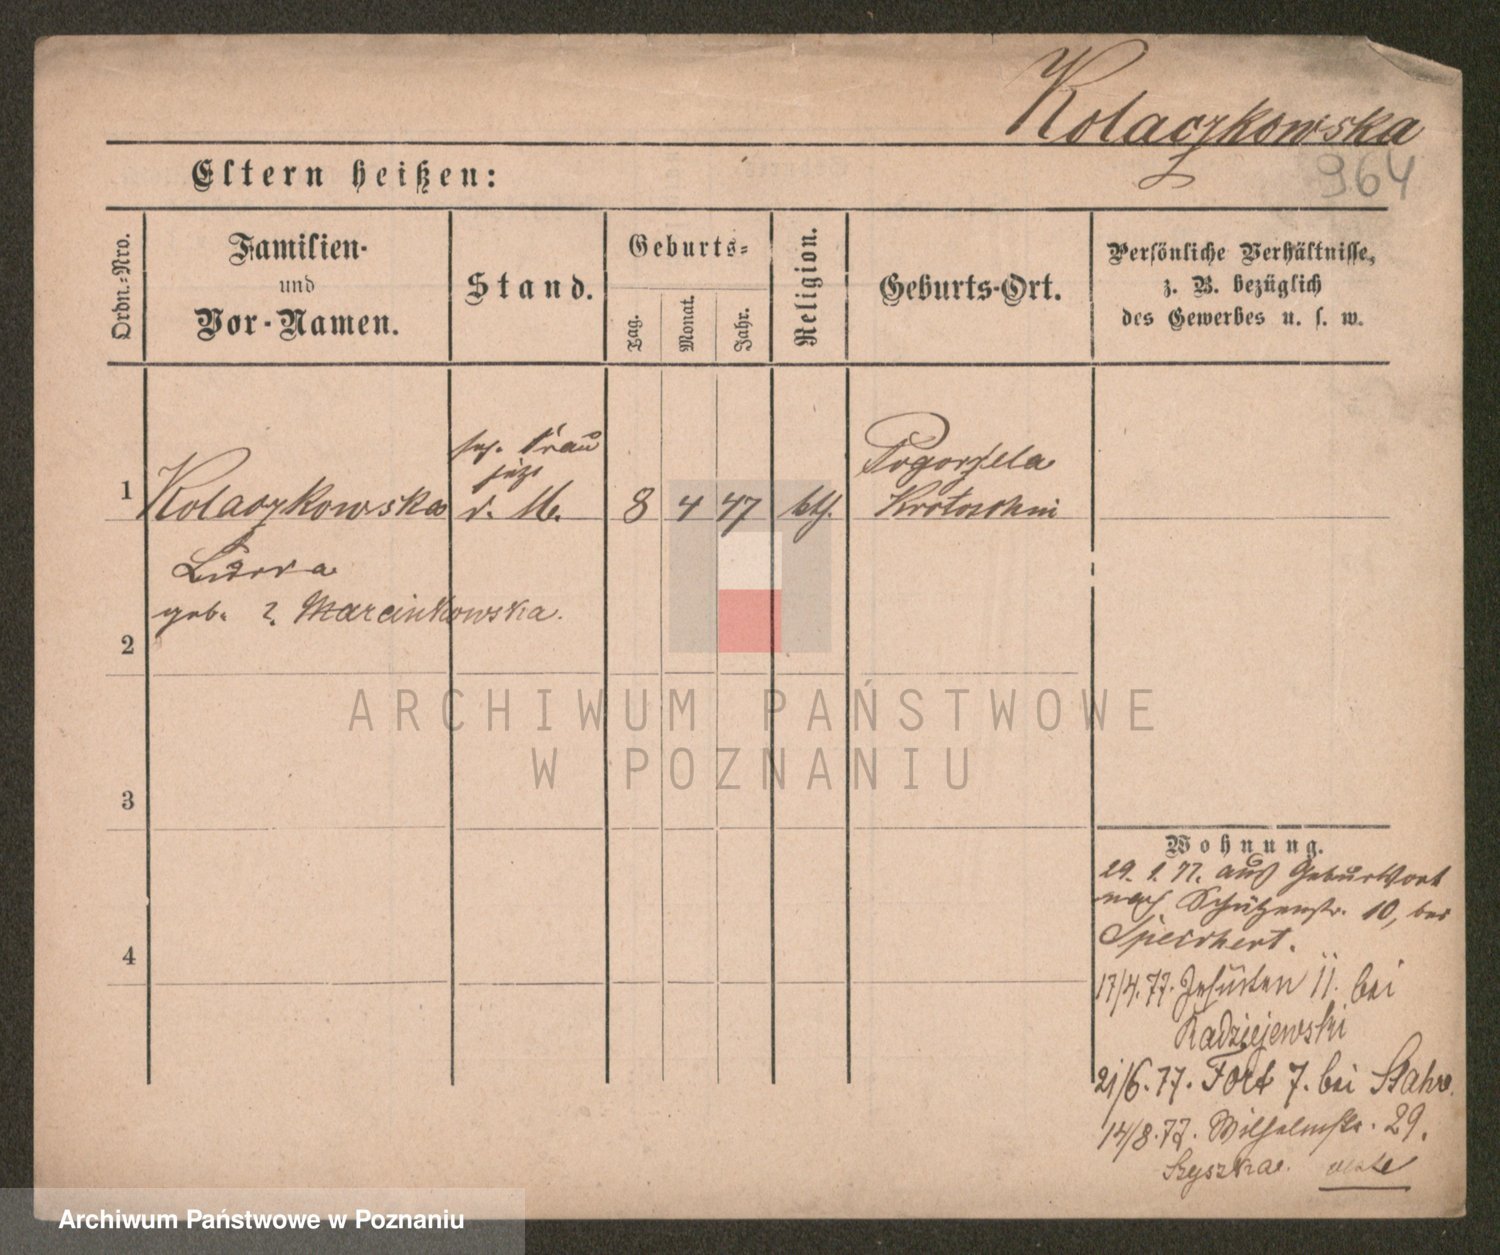 Kolaczkowska
964
Eltern heißen:
Ordn.-Nro.
Familien-
und
Vor-Namen.
Stand.
Geburts-
Tag.
Monat.
Jahr.
Religion.
Geburts-Ort.
Persönliche Verhältnisse,
z. B. bezüglich
des Gewerbes u. s. w.
1
Kolaczkowska
Frau
8 4 47 kth.
Pogorzela
Krotoschin
geb. Marcinkowska.
2
3
4
Wohnung.
29. 1. 77. aus Geburtsort
nach Schützenstr. 10, bei
Speichert.
17/4. 77. Jesuiten 11. bei
Radziejewski
21/6. 77. Fort 7. bei
14/8. 77. Wilhelmstr. 29.
Szyszka.
ARCHIWUM PAŃSTWOWE
W POZNANIU
Archiwum Państwowe w Poznaniu